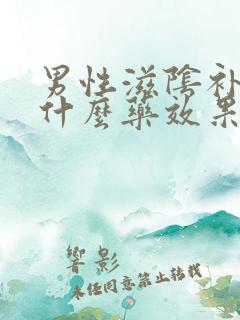 男性滋陰补
什麼藥效果
響影
未经同意禁止转载